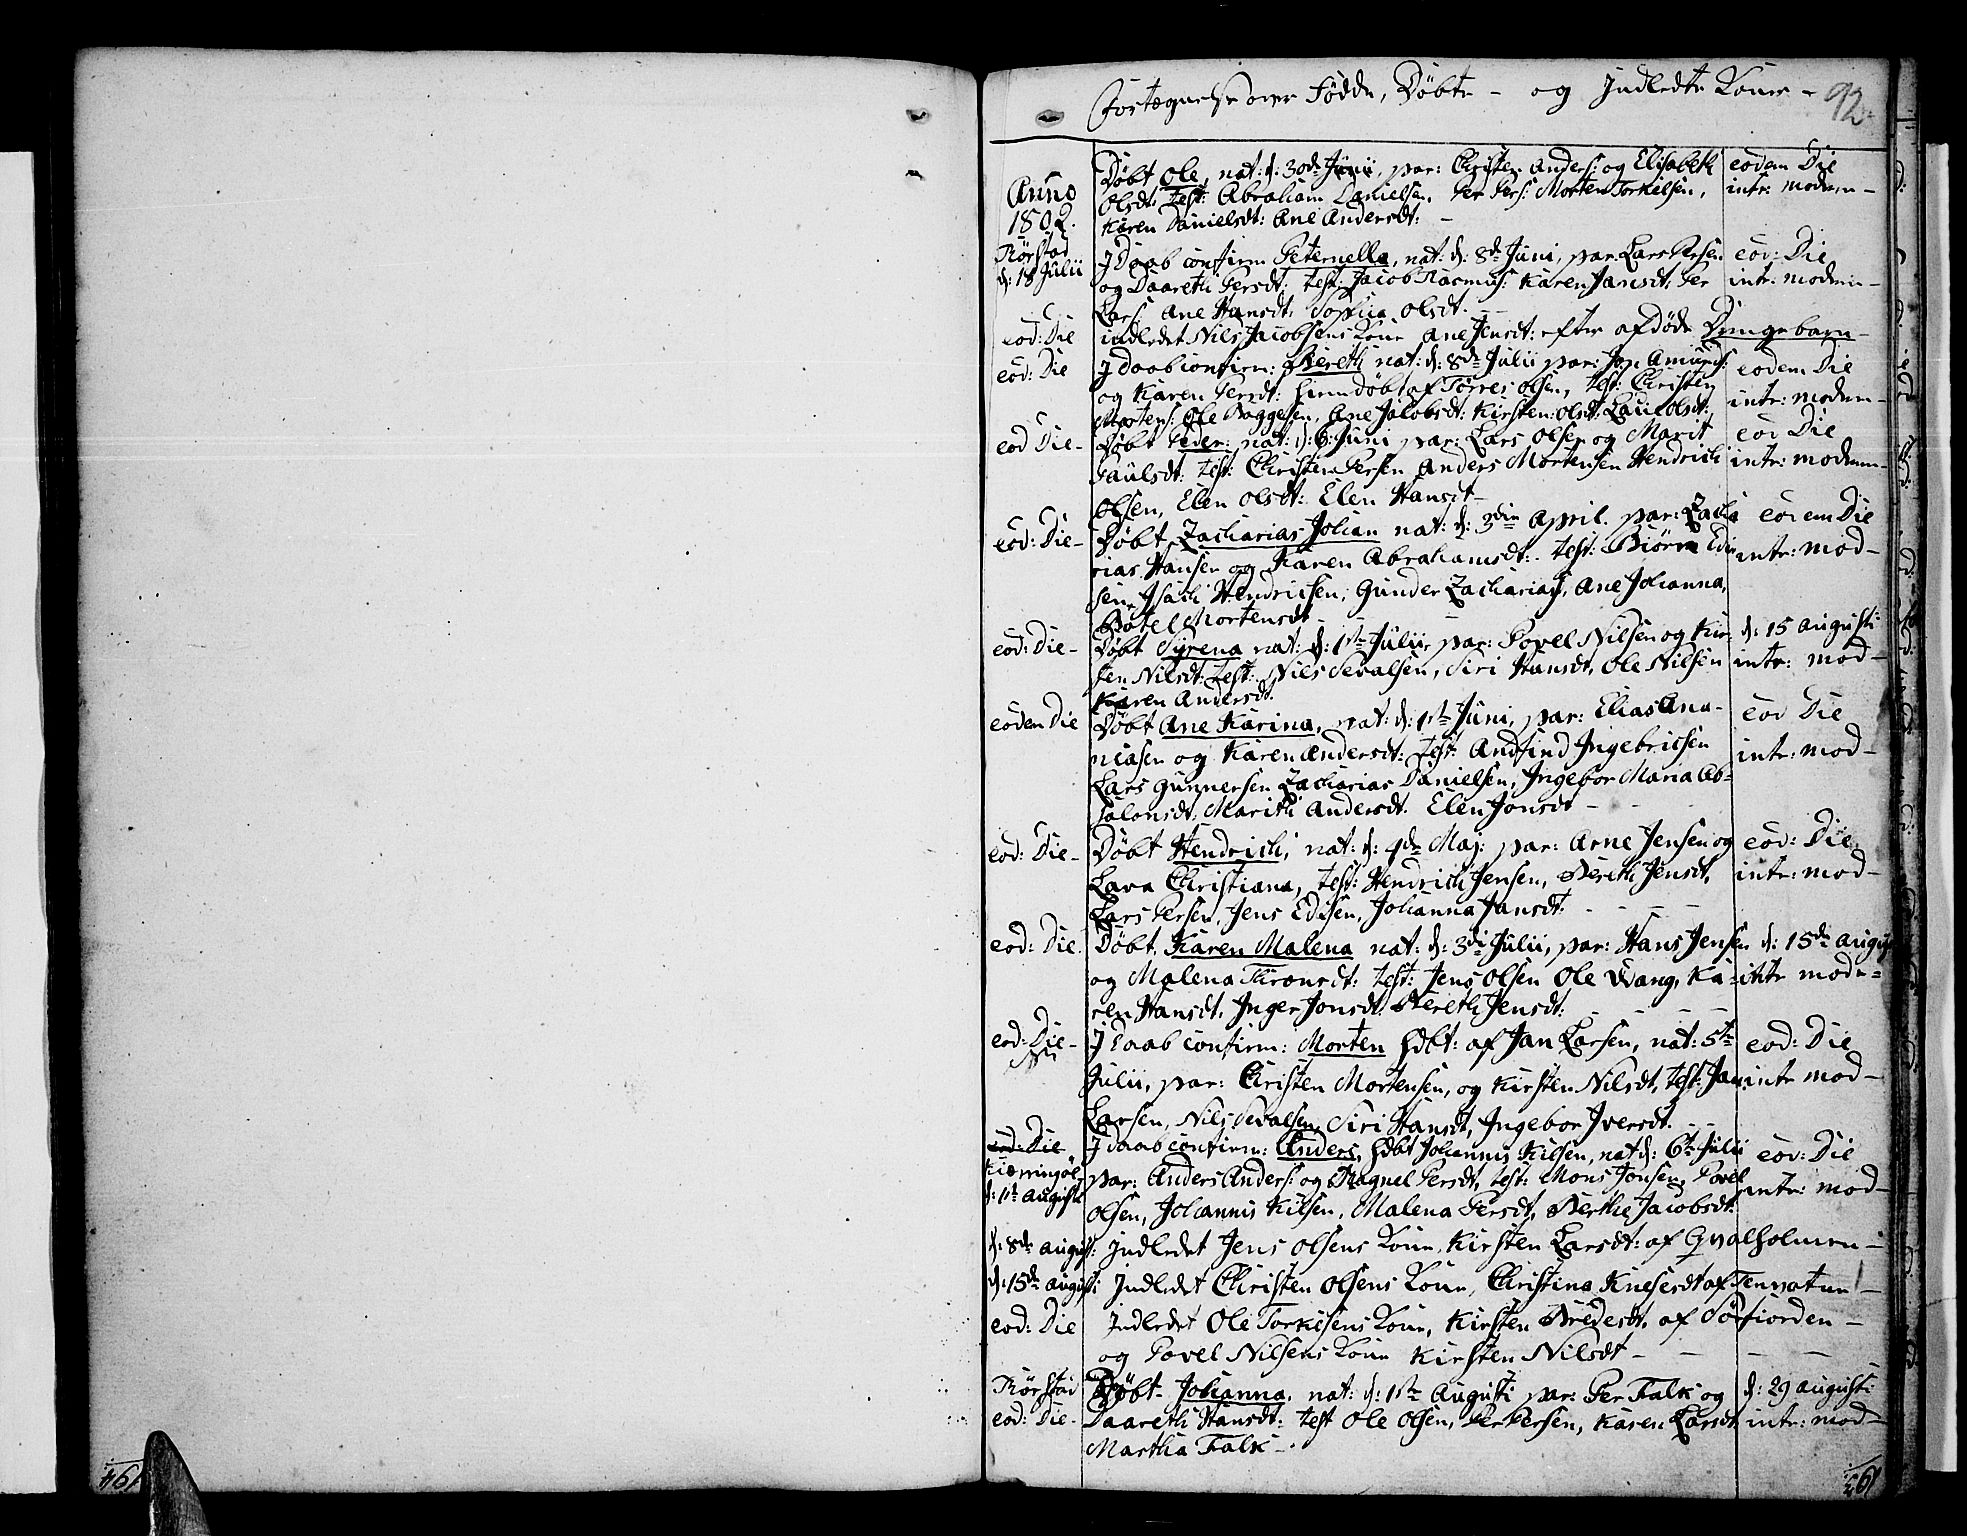 Fortegnelse over Födde, Döbte - og Indledte Koner -
92
Anno
1802.
Rörstad
d: 18 Julii
Döbt Ole, nat: d: 30de Junii, par: Christen Anders: og Elisabeth
Olsdt: test: Abraham Danielsen, Per Pers: Morten Torkelsen,
Karen Danielsdt: Ane Andersdt: -
eodem Die
intr: modrem -
J Daab confirm Peternella, nat: d: 8de Juni, par: Lars Persen
og Daareth Persdt: test: Jacob Rasmus: Karen Jansdt, Per
Lars: Ane Hansdt, Sophia Olsdt. -
eod: Die
intr: modrem -
eod: Die
indledet Nils Jacobsens Kone Ane Jensdt: efter afdöde Drengebarn -
eod: Die
J daab confirm: Bereth nat: d: 8de Julii par: Jon Amunds:
og Karen Persdt: hiem Döbt af Torres Olsen, test: Christen
Mortens: Ole Baggesen, Ane Jacobsdt: Kirsten Olsdt: Laue Olsdt:
eodem Die
intr: modrem -
eod Die -
Döbt Peder: nat: d: 6 Juni par: Lars Olsen og Marit
Paulsdt: test: Christen Persen Anders Mortensen Hendrich
Olsen, Elen Olsdt: Elen Hansdt -
eod Die
intr: modrem -
eod: Die -
Döbt Zacharias Johan nat: d: 3die April. par: Zacha
rias Hansen og Karen Abrahamsdt: - test: Biörn Edis
sen, Isach Hendrichsen, Gunder Zacharias, Ane Johanna,
Botel Mortensdt -
eodem Die
intr: mod -
eod: Die -
Döbt Syrena nat: d: 1ste Julii, par: Povel Nilsen og Kir
sten Nilsdt: test: Nils Sevalsen, Siri Hansdt, Ole Nilsen
Karen Andersdt.
d: 15 Augusti
intr: mod -
eodem Die
Döbt Ane Karina, nat: d: 1ste Juni, par: Elias Ana-
niasen og Karen Andersdt: test: Andfind Ingebricsen
Lars Gunnersen Zacharias Danielsen, Ingebor Maria Ab-
salonsdt, Marith Andersdt. Elen Jonsdt -
eod Die
intr: mod -
eod: Die -
Döbt Hendrich, nat: d: 4de Maj: par: Arne Jensen og
Lava Christiana, test: Hendrich Jensen, Bereth Jensdt,
Lars Persen, Jens Edisen, Johanna Jansdt. -
eod: Die
intr: mod -
eod: Die
Döbt. Karen Malena nat: d: 3die Julii, par: Hans Jensen
og Malena Thronsdt: test: Jens Olsen Ole Wang, Ka-
ren Hansdt, Inger Jonsdt. Bereth Jensdt: -
d: 15de August
intr mod -
eod: Die -
J Daab confirm: Morten hdbt: af Jan Larsen, nat: 5te
Julii, par: Christen Mortensen, og Kirsten Nilsdt, test: Jan
Larsen, Nils Sevalsen, Siri Hansdt, Ingebor Iversdt. -
eod: Die
intr mod -
eod: Die
Kierringöe
d: 1ste Augusti
J daab confirm: Anders, hdbt Johannis Kilsen, nat d: 6te Julii
par: Anders Anders: og Ragnel Persdt, test: Mons Jonsen, Povel
Olsen, Johannis Kilsen, Malena Persdt, Berthe Jacobsdt.
eod: Die
intr: mod -
d: 8de August:
Indledet Jens Olsens Kone, Kirsten Larsdt: af Gvalholmen -
d: 15de August:
Indledet Christen Olsens Kone, Christina Knesersdt af Tennvatne -
eod: Die
Indledet Ole Torkesens Kone, Kirsten Bredesdt. af Sörfiorden -
og Povel Nilsens Kone Kirsten Nilsdt -
Rörstad
eod: Die -
Döbt - Johanna, nat: d: 1ste Augusti par: Per Falk og
Daareth Hansdt: test Ole Olsen, Per Persen, Karen Larsdt
Martha Falk -
d: 29 Augusti
intr: mod -